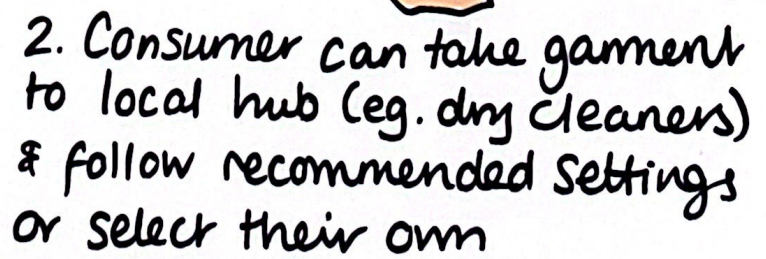 2. Consumer can take garment
to local hub (eg. dry cleaners)
& follow recommended settings
or select their own